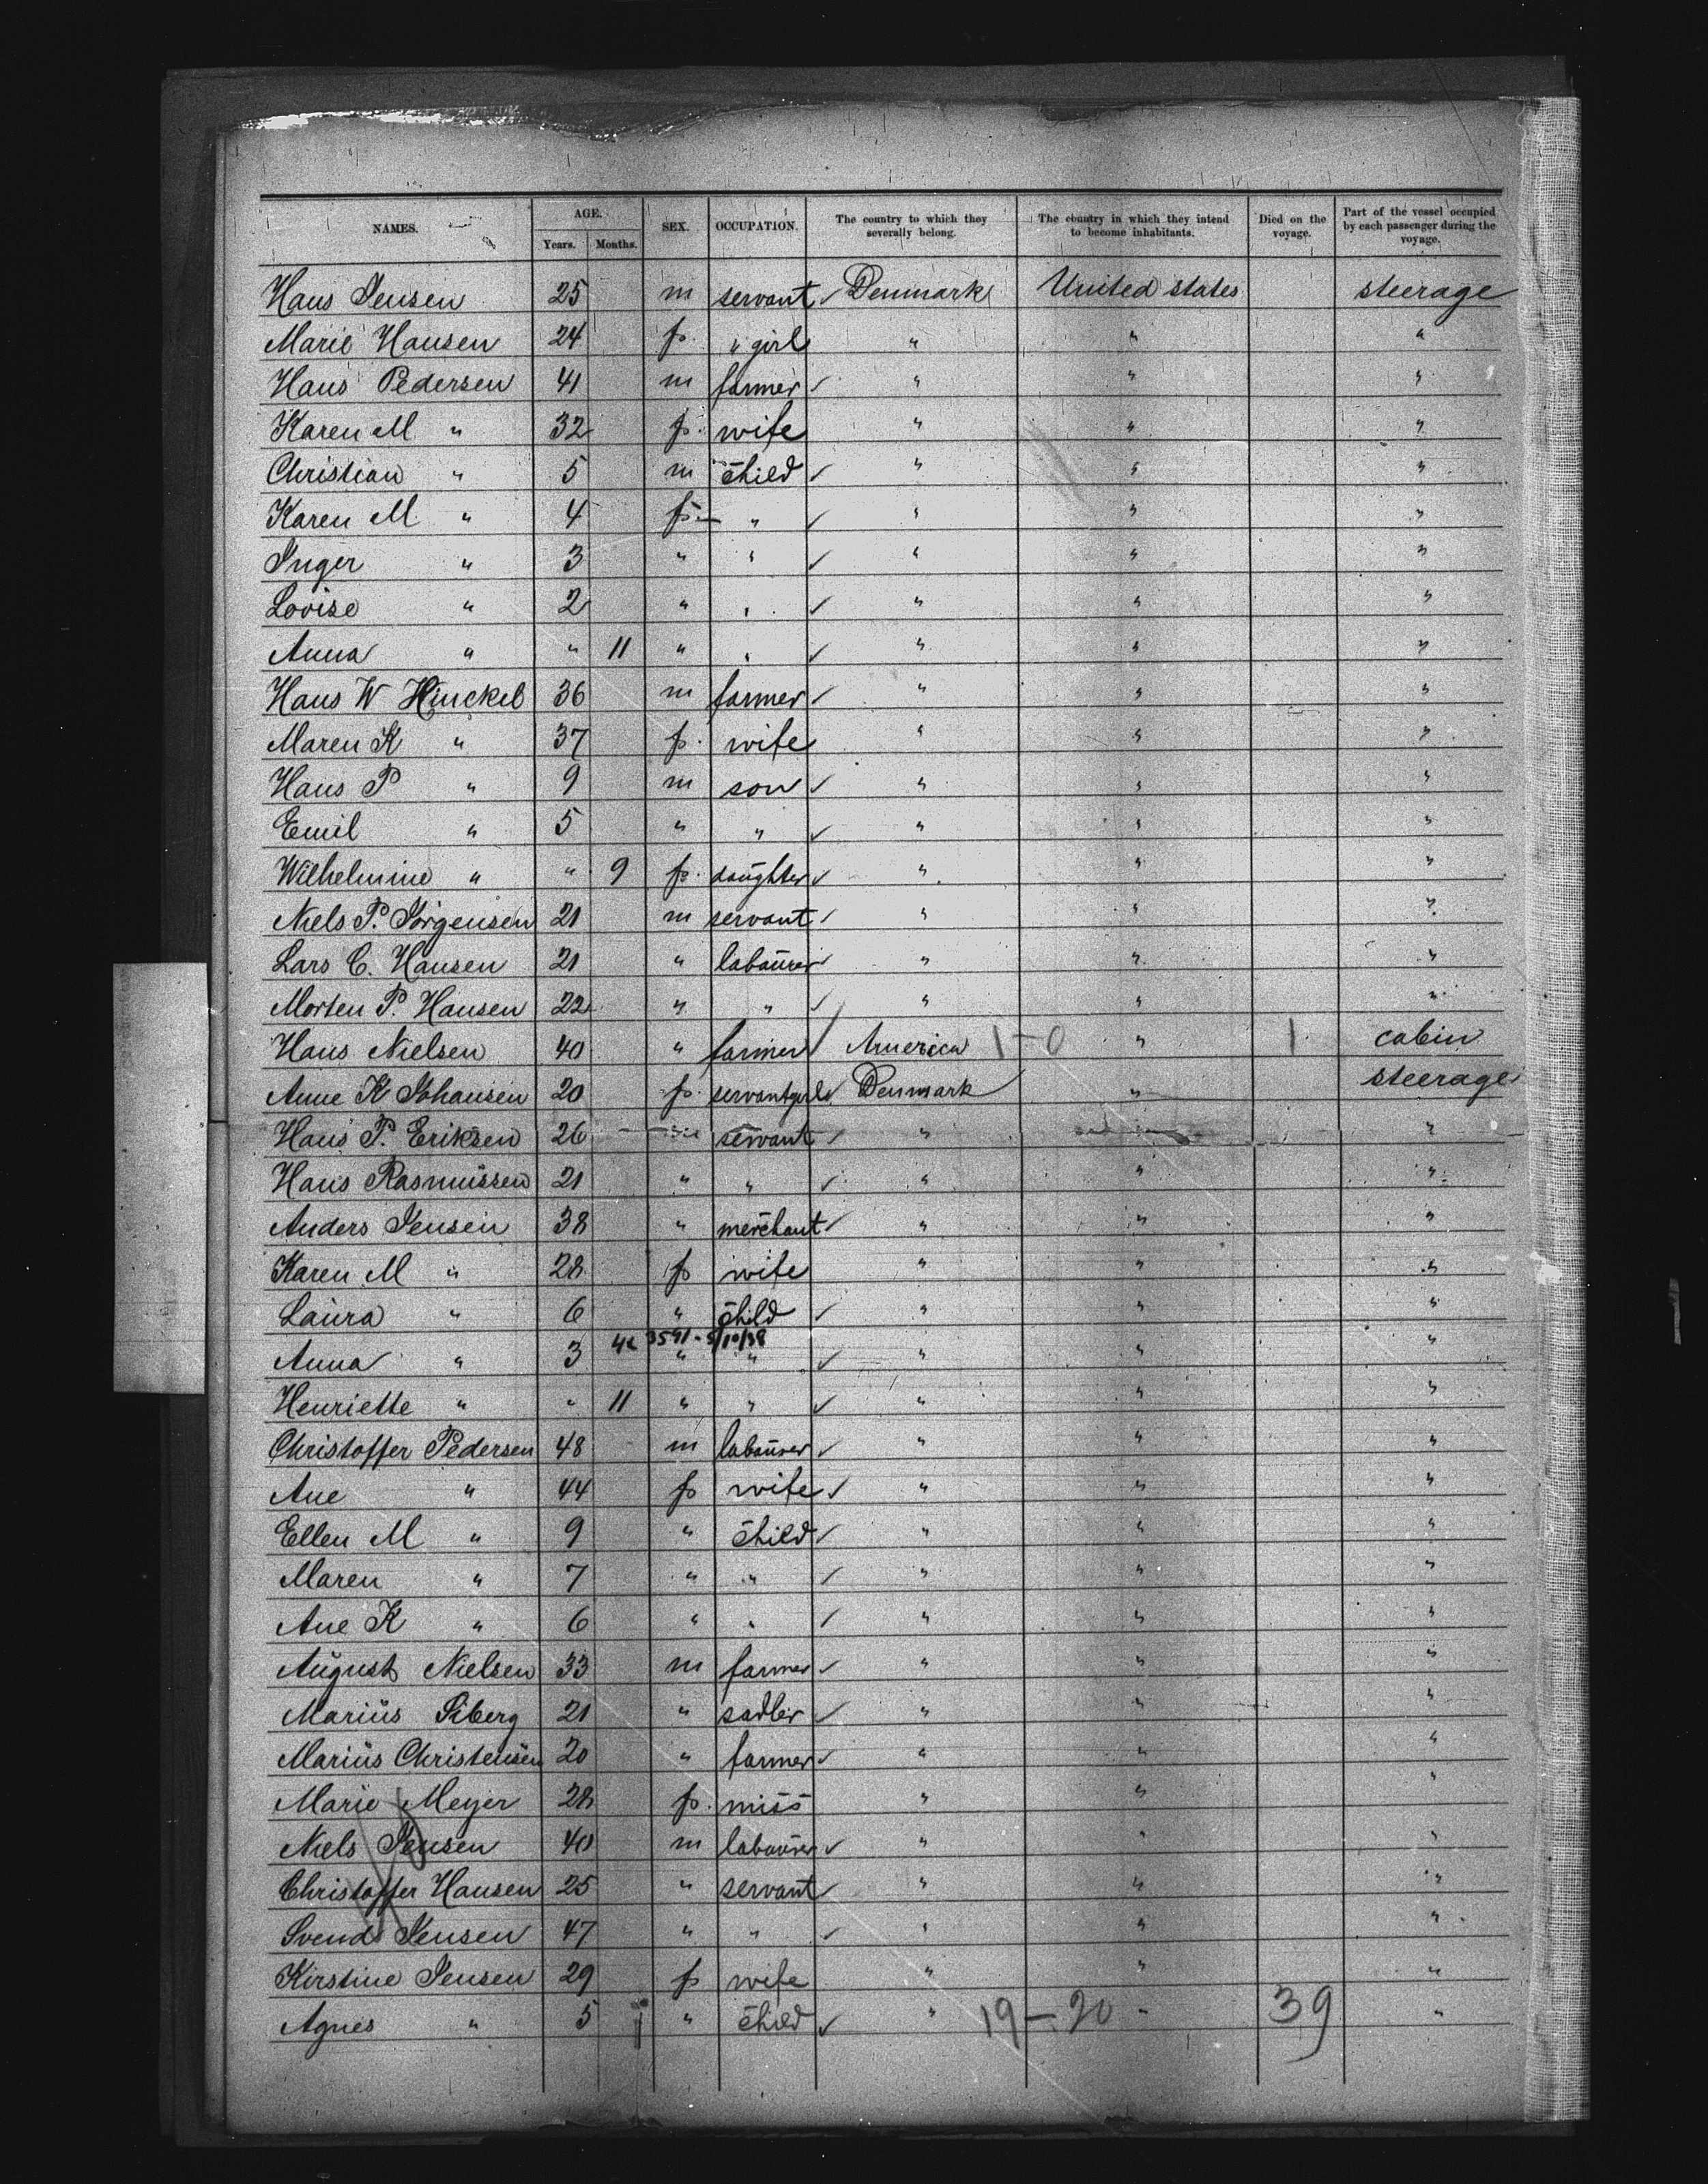 NAMES. AGE. SEX. OCCUPATION. The country to which they severally belong. The country in which they intend to become inhabitants. Died on the voyage. Part of the vessel occupied by each passenger during the voyage.
Years. Months.
Hans Jensen 25 m servant ✓ Denmark United states steerage
Marie Hansen 24 f. " girl " " "
Hans Pedersen 41 m farmer ✓ " " "
Karen M " 32 f. wife " " "
Christian " 5 m child ✓ " " "
Karen M " 4 f. " ✓ " " "
Inger " 3 " " ✓ " " "
Lovise " 2 " " ✓ " " "
Anna " " 11 " " ✓ " " "
Hans W Hinckel 36 m farmer ✓ " " "
Maren K " 37 f. wife " " "
Hans P " 9 m son ✓ " " "
Emil " 5 " " ✓ " " "
Wilhelmine " " 9 f. daughter ✓ " " "
Niels P. Jörgensen 21 m servant ✓ " " "
Lars C. Hansen 21 " labourer ✓ " " "
Morten P. Hansen 22 " " ✓ " " "
Hans Nielsen 40 " farmer ✓ America 1-0 " 1 cabin
Anne K Johansen 20 f. servantgirl ✓ Denmark " steerage
Hans P. Eriksen 26 servant ✓ " "
Hans Rasmussen 21 " " ✓ " " "
Anders Jensen 38 " merchant ✓ " " "
Karen M " 28 f wife " " "
Laura " 6 " child ✓ " " "
Anna " 3 " " ✓ " " "
Henriette " " 11 " " ✓ " " "
Christoffer Pedersen 48 m labourer ✓ " " "
Ane " 44 f wife ✓ " " "
Ellen M " 9 " child ✓ " " "
Maren " 7 " " ✓ " " "
Ane K " 6 " " ✓ " " "
August Nielsen 33 m farmer ✓ " " "
Marius Siberg 21 " sadler ✓ " " "
Marius Christensen 20 " farmer ✓ " " "
Marie Meyer 28 f. miss " " "
Niels Jensen 40 m labourer ✓ " " "
Christoffer Hansen 25 " servant ✓ " " "
Svend Jensen 47 " " ✓ " " "
Kirstine Jensen 29 f wife " " "
Agnes " 5 " child ✓ " 19-20 " 39 "